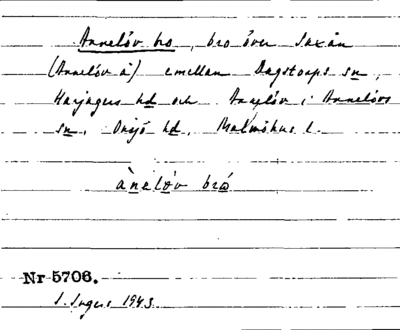 Annelöv bro, bro över Saxån
(Annelöv å) emellan Dagstorps sn,
Harjagers hd och Annelöv i Annelövs
sn, Onsjö hd, Malmöhus l.
ànelöv brö
Nr 5706.
S. Ingers 1943.